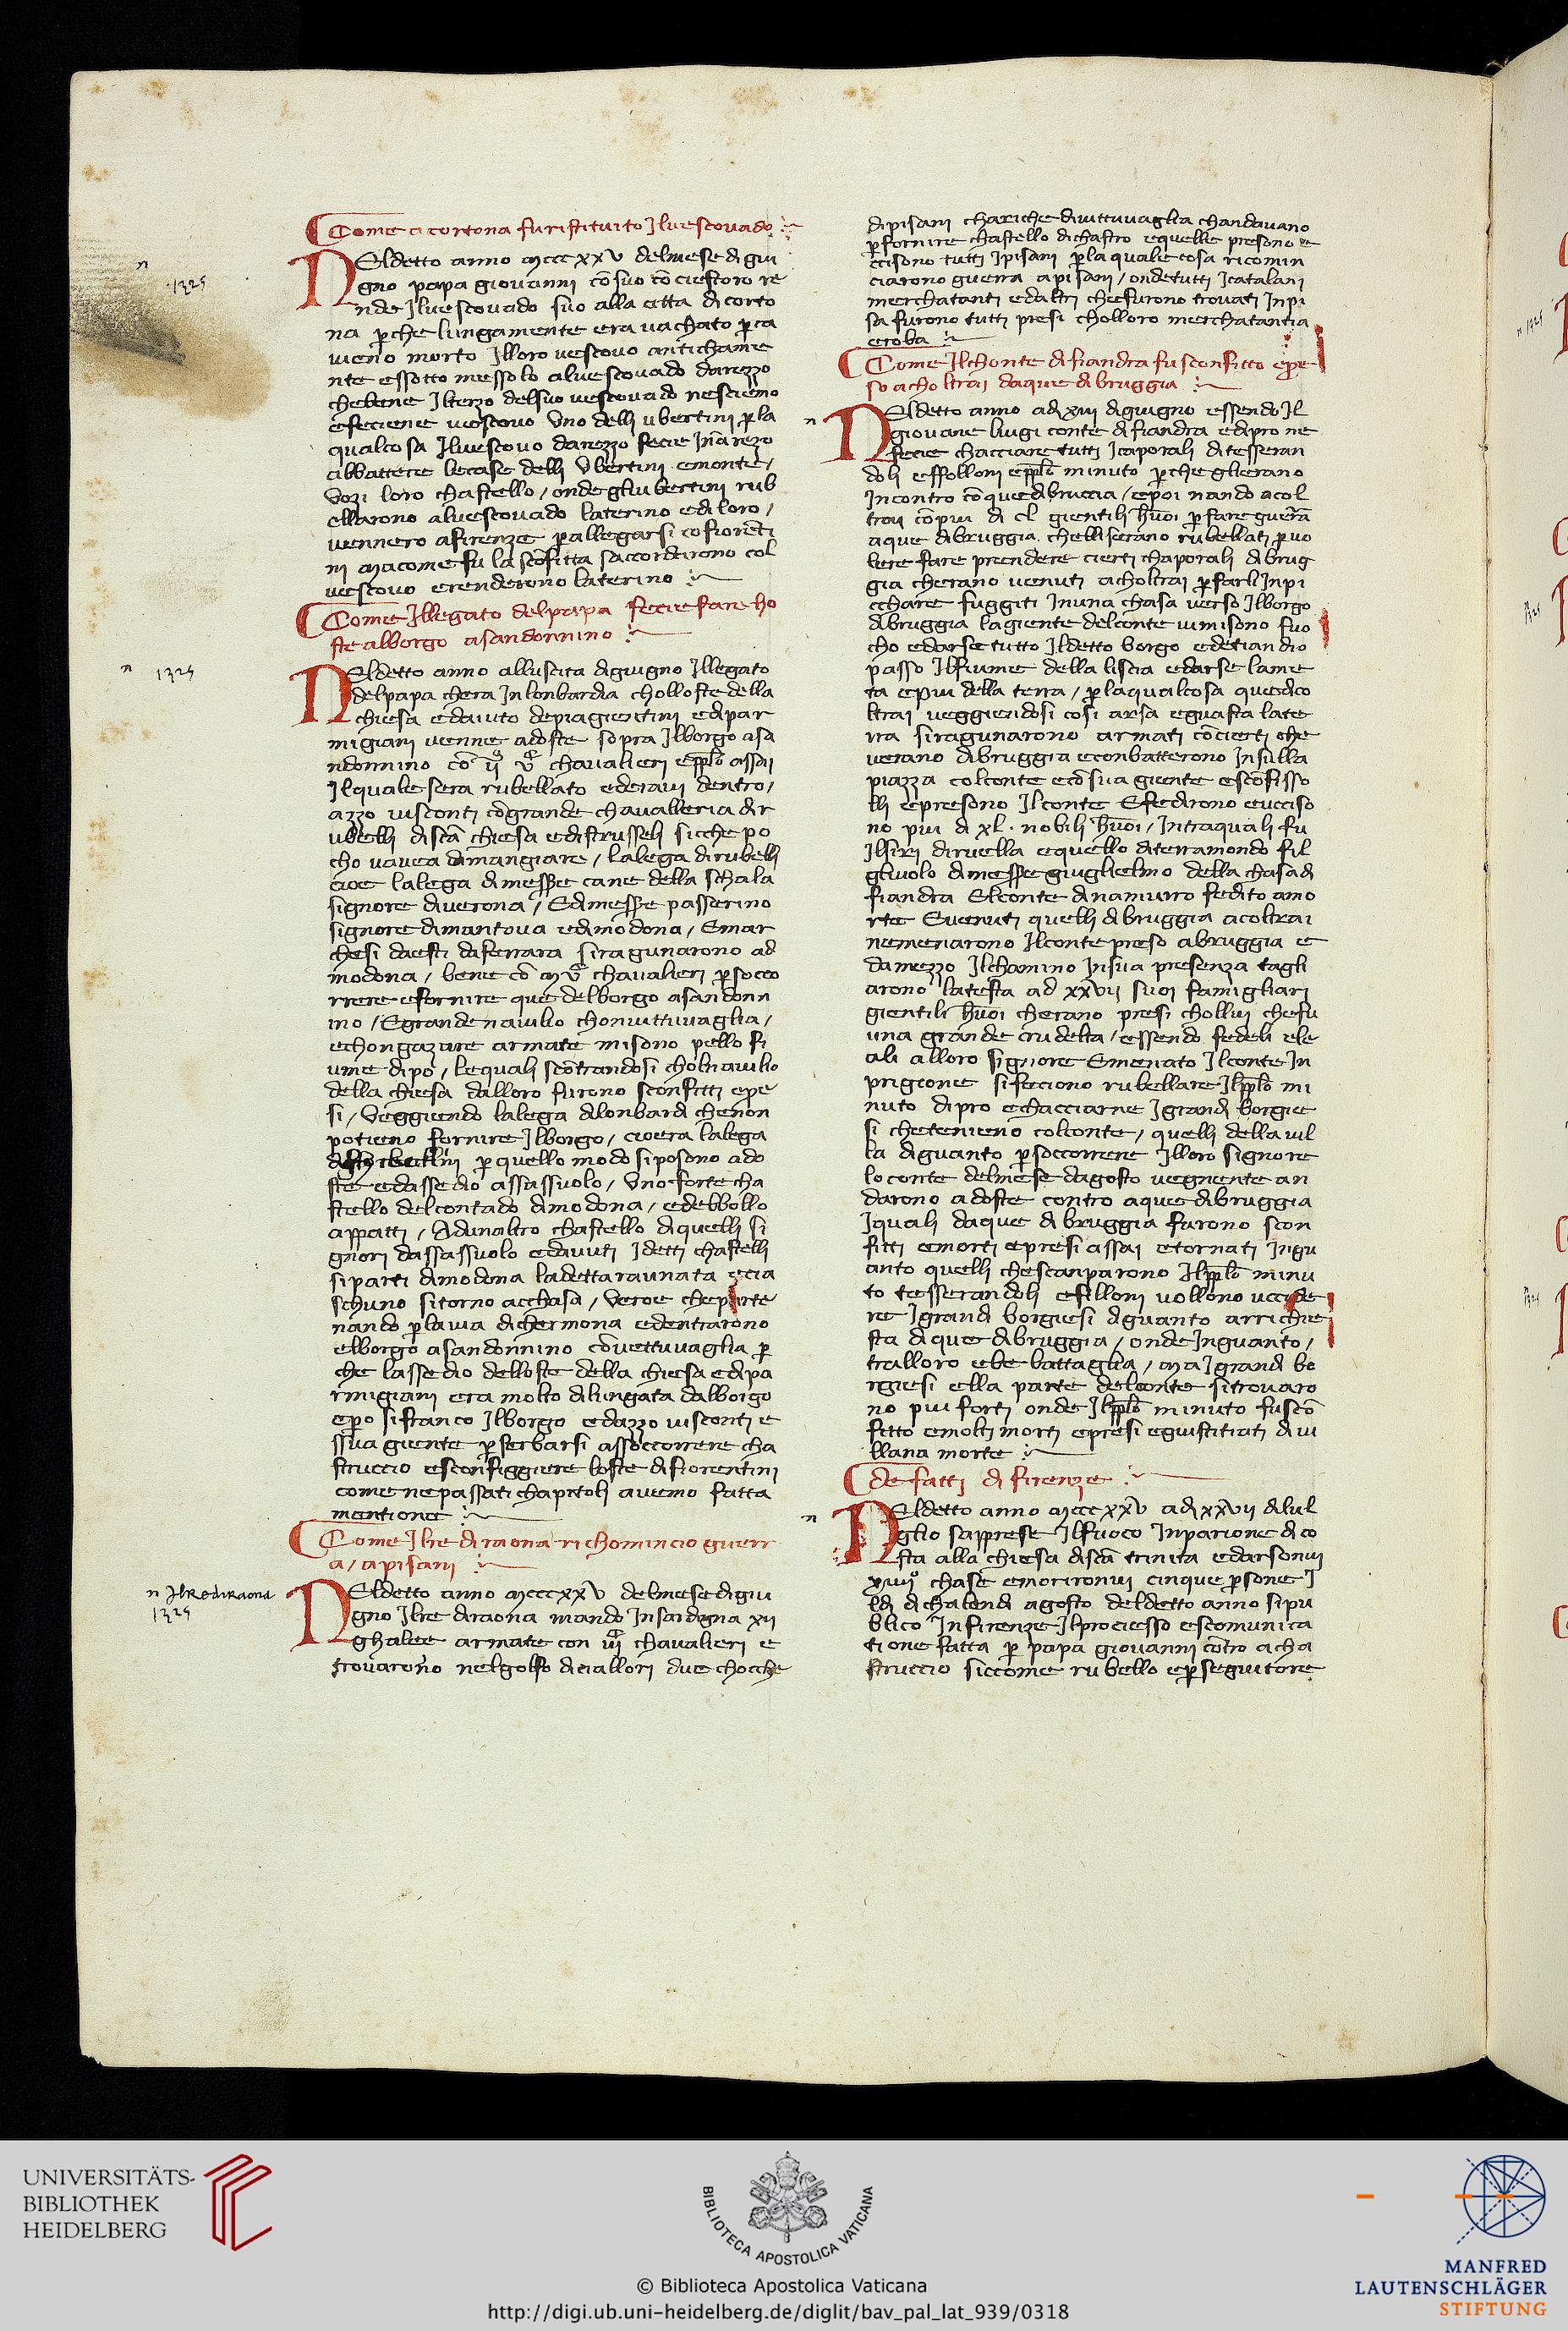 Come a cortona fu ristituito Jl vescovado
n
1325
NEldetto anno mccc xxv delmese di giu
gno papa giovanni cō suo cōciestoro re
nde Jlvescovado suo alla citta di corto
na p che lungamente era vachato p ca
uieno morto Jlloro vescovo antichame
nte essotto messolo alvescovado darezzo
chebene Jlterzo delsuo vescovado nesciemo
efeciene vescovo Uno delli ubertini p la
qualcosa Jlvescovo darezzo fecie Jnarezo
abbattere lecase delli Ubertini emonte/
Uozi loro chastello/ ondegliubertini rub
ellarono alvescovado laterino edi loro/
vennero afirenze p allegarsi co fiorēti
ni macome fu la scōfitta saccordarono col
vescovo erenderono laterino
Come Jllegato delpapa fecie fare ho
ste alborgo asandonnino
n 1325
NEldetto anno alluscita digiugno Jllegato
delpapa chera Jnlonbardia cholloste della
chiesa edaiuto depiagientini edipar
migiani venne adoste sopra Jlborgo asa
ndonnino cō chavalieri epplo assai
Jlquale sera rubellato ederavi dentro/
azzo visconti cōgrande chavalleria dir
ubelli discā chiesa edistrusseli sicche po
cho vavea dimangiare/ lalega dirubelli
cioe lalega dimessere cane della schala
signore diverona/ Edimessere passerino
signore dimantova edimodona/ Emar
chesi daesti diferrara siragunarono ad
modona/ bene cō chavalieri p socco
rrere efornire que delborgo asandonn
ino/ Egrande navilio chonvittuvaglia/
echongazare armate misono pello fi
ume dipo/ lequali scōtrandosi cholnavilio
della chiesa dalloro furono sconfitti epre
si/ Veggiendo lalega dilonbardi chenon
potieno fornire Jlborgo/ civera lalega
p quello modo siposono ado
ste edassedio assassuolo/ Uno forte cha
stello delcontado dimodona/ edebbollo
appatti/ Adunaltro chastello diquelli si
gnori dassassuolo edavuti Jdetti chastelli
siparti dimodona ladetta raunata ecia
schuno sitorno acchasa/ Veroe cheparte
nando p lavia dichermona edentrarono
elborgo asandonnino cōvettuvaglia p
che lassedio delloste della chiesa edipa
rmigiani era molto dilungata dalborgo
epo sifranco Jlborgo edazzo visconti e
ssua giente p serbarsi assoccorrere cha
struccio esconfiggiere loste difiorentini
come nepassati chapitoli avemo fatta
mentione
Come Jlre diraona richomincio guerr
a/ apisani
n Jlrediraona
1325
NEldetto anno mcccxxv delmesedigiu
gno Jlre diraona mando Jnsardigna xii
ghalee armate con chavalieri e
trovarono nelgolfo dicallori due chocche
dipisani chariche divittuvaglia chandavano
p fornire chastello dichastro equelle presono e
ccisono tutti Jpisani p laqualecosa ricomin
ciarono guerra apisani/ ondetutti Jcatalani
merchatanti edaltri chefurono trovati Jnpi
sa furono tutti presi cholloro merchatantia
eroba
Come Jlchonte di fiandra fu sconfitto epre
so acholtrai daque dibruggia
n
NEldetto anno adi xiii digiugno essendo Jl
giovane luigi conte di fiandra edipro ne
fecie chacciare tutti Jcaporali ditesseran
doli effolloni epplo minuto p che glierano
Jncontro cōque dibruccia/ epoi nando acol
trai cōpiu di cl gientili huoi p fare guerā
aque dibruggia. chellis erano rubellati p vo
lere fare prendere cierti chaporali dibrug
gia cherano venuti acholtrai p farli Jnpi
cchare fuggiti Jnuna chasa verso Jlborgo
dibruggia lagiente delconte vimisono fuo
cho edarse tutto Jldetto borgo edetiandio
passo Jlfiume della liscia edarse lame
ta epiu della terra/ p laqualcosa quedico
ltrai veggiendosi cosi arsa eguasta late
rra siragunarono armati cōcierti che
verano dibruggia econbatterono Jnsulla
piazza colconte ecōsua giente escōfisso
lli epresono Jlconte Efedirono eucciso
no piu di xl. nobili huoi/ Jntraquali fu
Jlsiri diruella equello diterramondo fil
gliuolo dimessere giuglielmo della chasadi
fiandra Elconte dinamurro fedito amo
rte Evenuti quelli dibruggia acoltrai
nemenarono Jlconte preso abruggia e
damezzo Jlchamino Jnsua presenza tagli
arono latesta ad xxvii suoi famigliari
gientili huoi cherano presi chollui chefu
una grande crudelta/ essendo fedeli ele
ali alloro signore Emenato Jlconte Jn
prigione sifeciono rubellare Jlpplo mi
nuto dipro echacciarne Jgrandi borgie
si chetenieno colconte/ quelli della vil
la diguanto p soccorrere Jlloro signore
loconte delmese dagosto vegnente an
darono adoste contro aque dibruggia
Jquali daque dibruggia furono scon
fitti emorti epresi assai etornati Jngu
anto quelli chescanparono Jlpplo minu
to tesserandoli efilloni vollono uccide
re Jgrandi borgiesi diguanto arrichie
sta dique dibruggia/ onde Jnguanto/
tralloro ebe battaglia/ ma Jgrandi bo
rgiesi ella parte delconte sitrovaro
no piu forti onde Jlpplo minuto fuscō
fitto emolti morti epresi egiustitiati divi
llana morte
de fatti di firenze
n
NEldetto anno mcccxxv adi xxvii dilul
glio sapprese Jlfuoco Jnparione dico
sta alla chiesa discā trinita edarsonvi
chase emorironvi cinque persone J
ldi dichalendi agosto deldetto anno sipu
blico Jnfirenze Jlprociesso escomunica
tione fatta p papa giovanni cōtro acha
struccio siccome rubello ep seguitore
UNIVERSITÄTS-
BIBLIOTHEK
HEIDELBERG
BIBLIOTECA APOSTOLICA VATICANA
© Biblioteca Apostolica Vaticana
http://digi.ub.uni-heidelberg.de/diglit/bav_pal_lat_939/0318
MANFRED
LAUTENSCHLÄGER
STIFTUNG